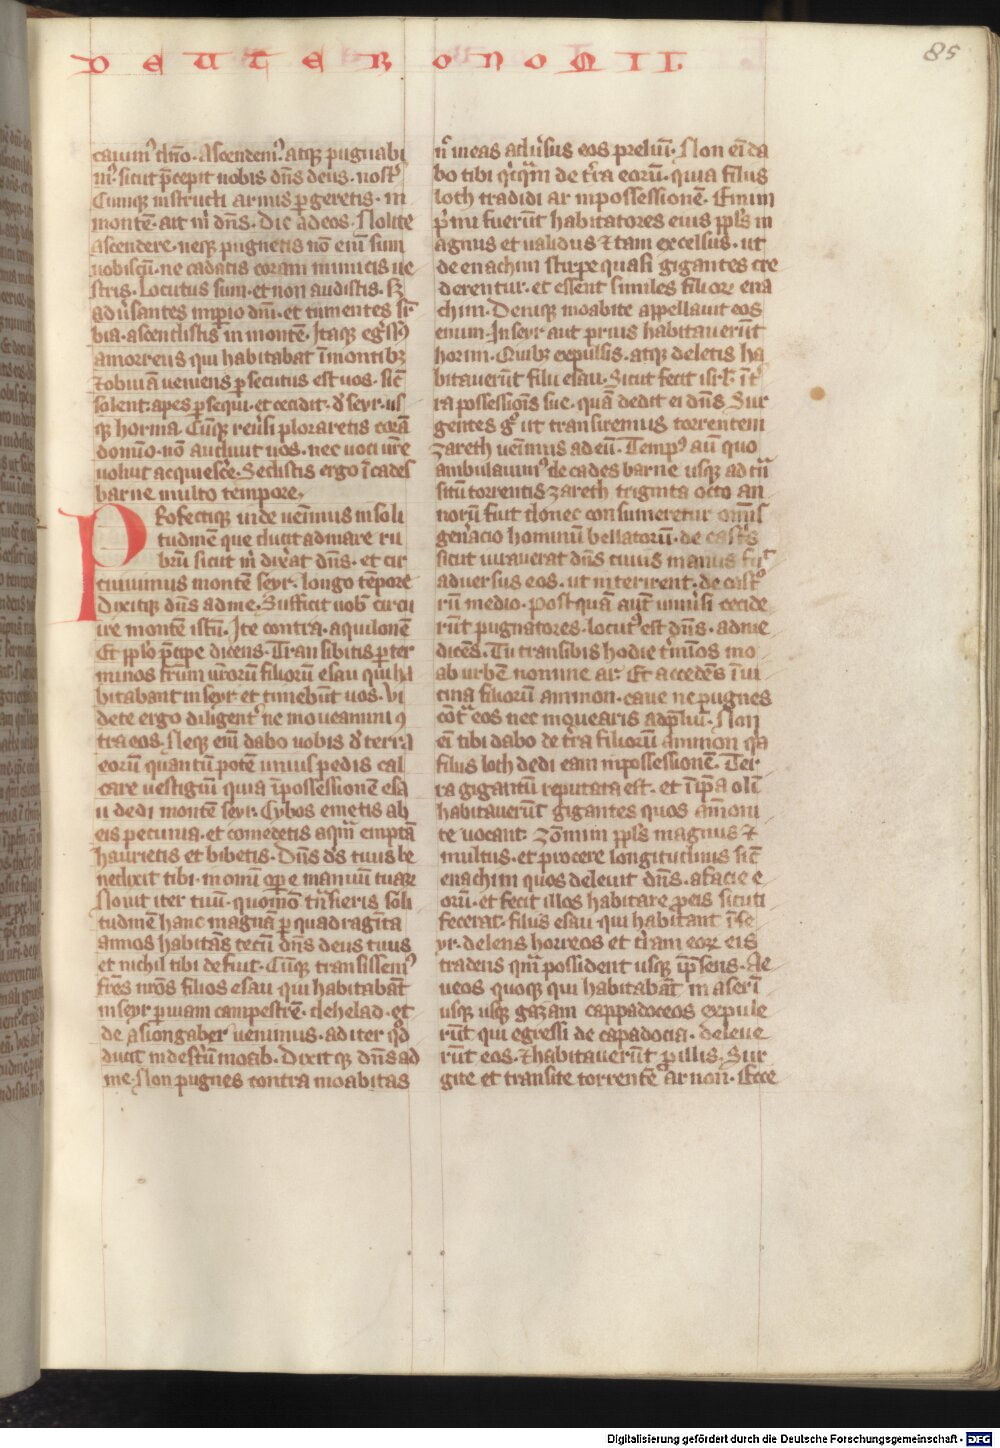 DEUTERONOMII.
85
cauimꝰ dn̄o. Ascendemꝰ atqꝫ pugnabi
mꝰ. sicut p̄cepit nobis dn̄s deus. nostˀ
Cumqꝫ instructi armis ꝑgeretis. in
montē. ait m̄ dn̄s. Dic ad eos. Nolite
ascendere. neqꝫ pugnetis nō enī sum
uobiscū. ne cadatis coram inimicis ue
stris. Locutus sum. et non audistis. sꝫ
aduˀsantes imꝑio dn̄i. et tumentes suꝑ
bia. ascendistis in montē. Itaqꝫ egˀssꝰ
amorreus qui habitabat ī montibꝫ
⁊ obuiā ueniens ꝑsecutus est uos. sic̄
solent apes ꝑsequi. et cecidit. dˀ seyr. us
qꝫ horma. Cūqꝫ reuˀsi ploraretis corā
domīo. nō audiuit uos. nec uoci ur̄e
uoluit acquiesc̄e. Sedistis ergo ī cades
barne multo tempore.
Profectiqꝫ inde uenimus in soli
tudinē que ducit ad mare ru
brū sicut m̄ dixˀat dn̄s. et cir
cuiuimus montē seyr. longo tēpore
Dixitqꝫ dn̄s ad me. Sufficit uob̄ circu
ire montē istū. Ite contra. aquilonē
Et pplo p̄cipe dicens. Transibitis ꝑ ter
minos fr̄um ur̄orū filiorū esau qui ha
bitabant in seyr et timebūt uos. Vi
dete ergo diligentˀ ne moueamini ꝯ
tra eos. Neqꝫ enī dabo uobis dˀ terra
eorū quantū potē unius pedis cal
care uestigiū quia ī possessionē esa
u dedi montē seyr. Cybos emetis ab
eis pecunia. et comedetis aqm̄ emptā
haurietis et bibetis. Dn̄s ds̄ tuus be
nedixit tibi. in omni oꝑe manuū tuaꝝ
Nouit iter tuū. quomō tn̄sieris soli
tudinē hanc magnā ꝑ quadragīta
annos habitās tecū dn̄s deus tuus
et nichil tibi defuit. Cūqꝫ transissemꝰ
fr̄es nr̄os filios esau qui habitabāt
in seyr ꝑ uiam campestrē. de helad. et
de asiongaber uenimus. ad iter qd̄
ducit in desˀtū moab. Dixitqꝫ dn̄s ad
me. Non pugnes contra moabitas
nˀ ineas aduˀsus eos preliū. Non eī da
bo tibi qˀcqm̄ de tˀra eorū. quia filiis
loth tradidi ar in possessionē. Emim
pˀmi fuerūt habitatores eius ppls̄ m
agnus et ualidus ⁊ tam excelsus. ut
de enachim stirpe quasi gigantes cre
derentur. et essent similes filioꝝ ena
chim. Deniqꝫ moabite appellauit eos
emim. In seyr aut̄ prius habitauerūt
horim. Quibꝫ expulsis. atqꝫ deletis ha
bitauerūt filii esau. Sicut fecit isrl̄. ī tˀ
ra possessiōis sue. quā dedit ei dn̄s. Sur
gentes gͦ ut transiremus torrentem
zareth uenimus ad eū. Tempꝰ aut̄ quo
ambulauimꝰ de cades barne usqꝫ ad tn̄
situ torrentis zareth triginta octo an
norū fuit donec consumeretur om̄is
genˀacio hominū bellatorū. de castˀs
sicut iurauerat dn̄s cuius manus fuit
aduersus eos. ut interirent. de castꝰ
rū medio. Postquā aut̄ uniuˀsi cecide
rūt pugnatores. locutꝰ est dn̄s. ad me
dicēs. Tu transibis hodie tˀmīos mo
ab urbē nomine ar. Et accedēs ī ui
cina filiorū ammon. caue ne pugnes
cōtˀ eos nec mouearis ad pliū. Non
eī tibi dabo de tˀra filiorū ammon qa
filiis loth dedi eam in possessionē. Ter
ra gigantū reputata est. et ī ip̄a olī
habitauerūt gigantes quos āmoni
te uocant. zōmim ppls̄ magnus ⁊
multus. et procere longitudinis sic̄
enachim quos deleuit dn̄s. a facie e
orū. et fecit illos habitare ꝓ eis sicuti
fecerat. filiis esau. qui habitant ī se
yr. delens horreos et tˀram eoꝝ eis
tradens qm̄ possident usqꝫ ip̄sens. Ae
ueos quoqꝫ qui habitabāt in aserī
usqꝫ usqꝫ gazam cappadoceos expule
rūt qui egressi de capadocia. deleue
rūt eos. ⁊ habitauerūt ꝓ illis. Sur
gite et transite torrentē arnon. Ecce
Digitalisierung gefördert durch die Deutsche Forschungsgemeinschaft - DFG